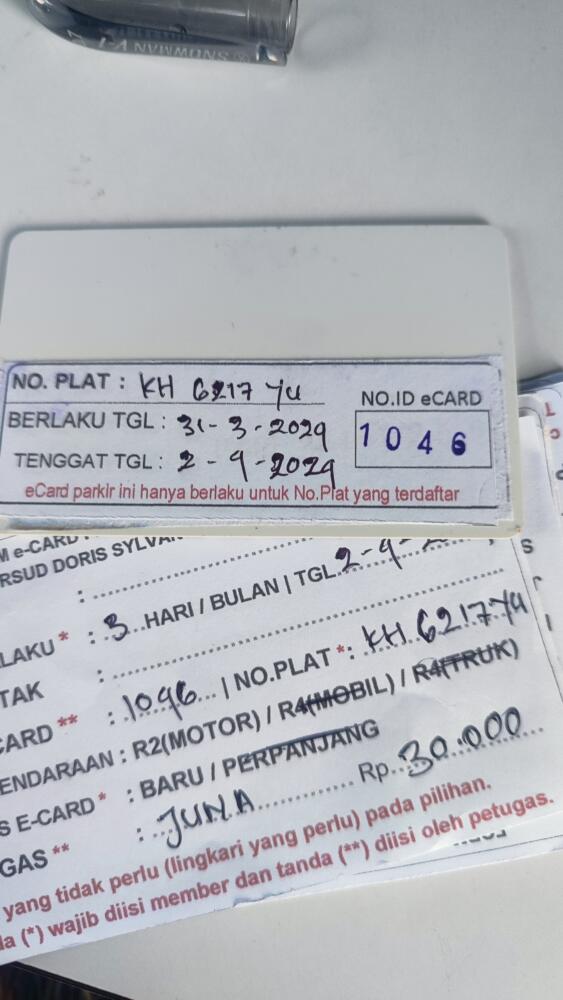 NO. PLAT : KH 6217 YU
NO.ID eCARD
BERLAKU TGL : 31-3-2024
1046
TENGGAT TGL : 2-4-2024
eCard parkir ini hanya berlaku untuk No.Plat yang terdaftar
e-CARD
RSUD DORIS SYLVAN
LAKU * : 3 HARI / BULAN | TGL. 2-4-
TAK :
CARD ** : 1046 | NO.PLAT *: KH 6217 YU
ENDARAAN : R2(MOTOR) / R4(MOBIL) / R4(TRUK)
S E-CARD * : BARU / PERPANJANG
GAS ** : JUNA Rp. 30.000
yang tidak perlu (lingkari yang perlu) pada pilihan.
da (*) wajib diisi member dan tanda (**) diisi oleh petugas.